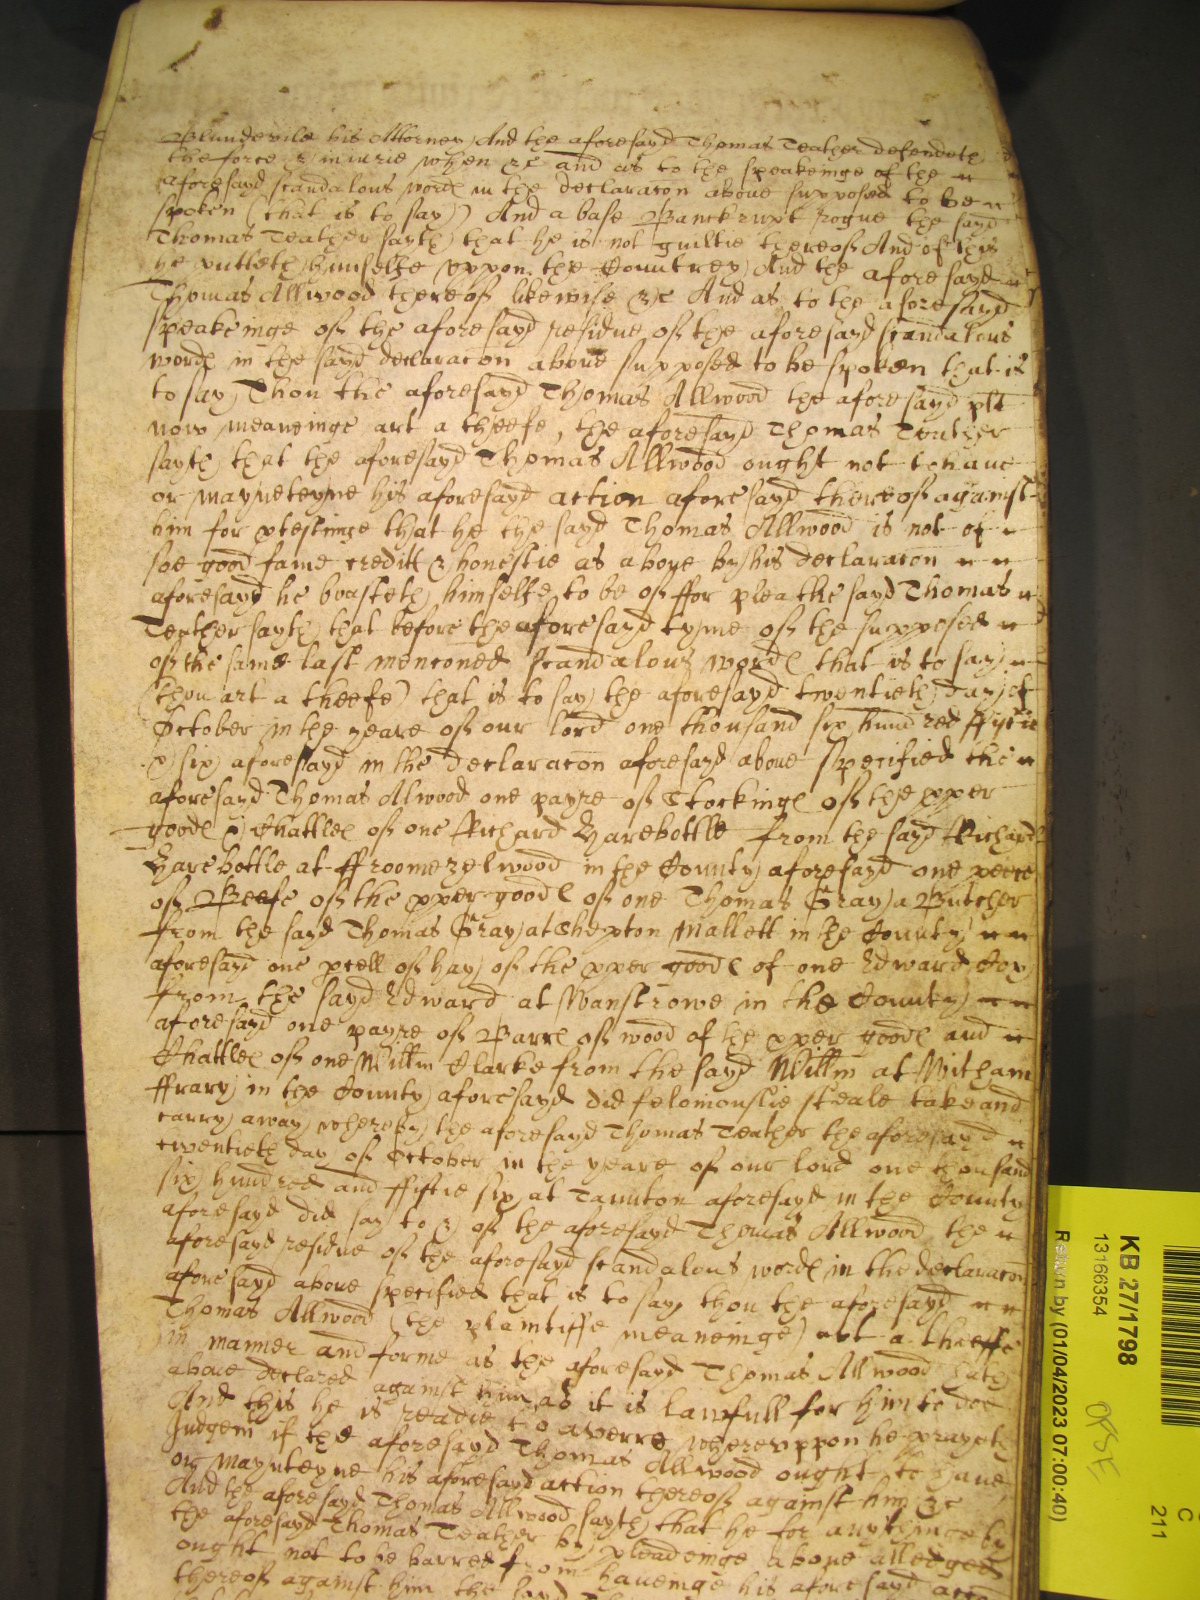 Blundevile his Attorney And the aforesayd Thomas Teather defendeth
the force & iniurie when &c and as to the speakeinge of the
aforesayd scandalous word in the declaracon aboue supposed to be
spoken (that is to say) And a base Banckrupt rogue the sayd
Thomas Teather sayth that he is not guiltie thereof And of this
he putteth himselfe vppon the Countrey And the aforesayd
Thomas Allwood thereof likewise &c And as to the aforesayd
speakeinge of the aforesayd residue of the aforesayd scandalous
word in the sayd declaracon aboue supposed to be spoken that is
to say Thou the aforesayd Thomas Allwood the aforesayd plt
now meaneinge art a theefe, the aforesayd Thomas Teather
sayth that the aforesayd Thomas Allwood ought not to haue
or mayneteyne his aforesayd action aforesayd thereof against
him for ptestinge that he the sayd Thomas Allwood is not of
soe good fame creditt & honestie as aboue by his declaracon
aforesayd he boasteth himselfe to be of ffor plea the sayd Thomas
Teather sayth that before the aforesayd tyme of the supposed
of the same last menconed scandalous word that is to say
(thou art a theefe) that is to say the aforesayd twentieth day of
October in the yeare of our lord one thousand six hundred fftie
& six aforesayd in the declaracon aforesayd aboue specified the
aforesayd Thomas Alwood one payre of Stockings of the pper
goods & Chattles of one Richard Harebottle from the sayd Richard
Harebottle at ffroomezelwood in the County aforesayd one peece
of Beefe of the pper goods of one Thomas Gray a Butcher
from the sayd Thomas Gray at Shepton Mallett in the County
aforesayd one pcell of hay of the pper goods of one Edward Cox
from the sayd Edward at Wanstrowe in the County
aforesayd one payre of Barrs of wood of the pper goods and
Chattles of one Willm Clarke from the sayd Willm at Witham
ffrary in the County aforesayd did feloniouslie steale take and
carry away whereby the aforesayd Thomas Teather the aforesayd
twentieth day of October in the yeare of our lord one thousand
six hundred and ffiftie six at Taunton aforesayd in the County
aforesayd did say to & of the aforesayd Thomas Allwood the
aforesayd residue of the aforesayd scandalous words in the declaracon
aforesayd aboue specified that is to say thou the aforesayd
Thomas Allwood (the plantiffe meaneinge) art a theeffe
in manner and forme as the aforesayd Thomas Allwood hath
aboue declared against him as it is lawfull for him to doe
And this he is readie to averre wherevppon he prayeth
Judgemt if the aforesayd Thomas Allwood ought to haue
or maynteyne his aforesayd action thereof against him &c
And the aforesayd Thomas Allwood sayth that he for anythinge by
the aforesayd Thomas Teather by pleadeinge aboue alledged
ought not to be barred from haueinge his aforesayd
thereof against him the sayd
KB 27/1798
13166354
Return by (01/04/2023 07:00:40)
C
211